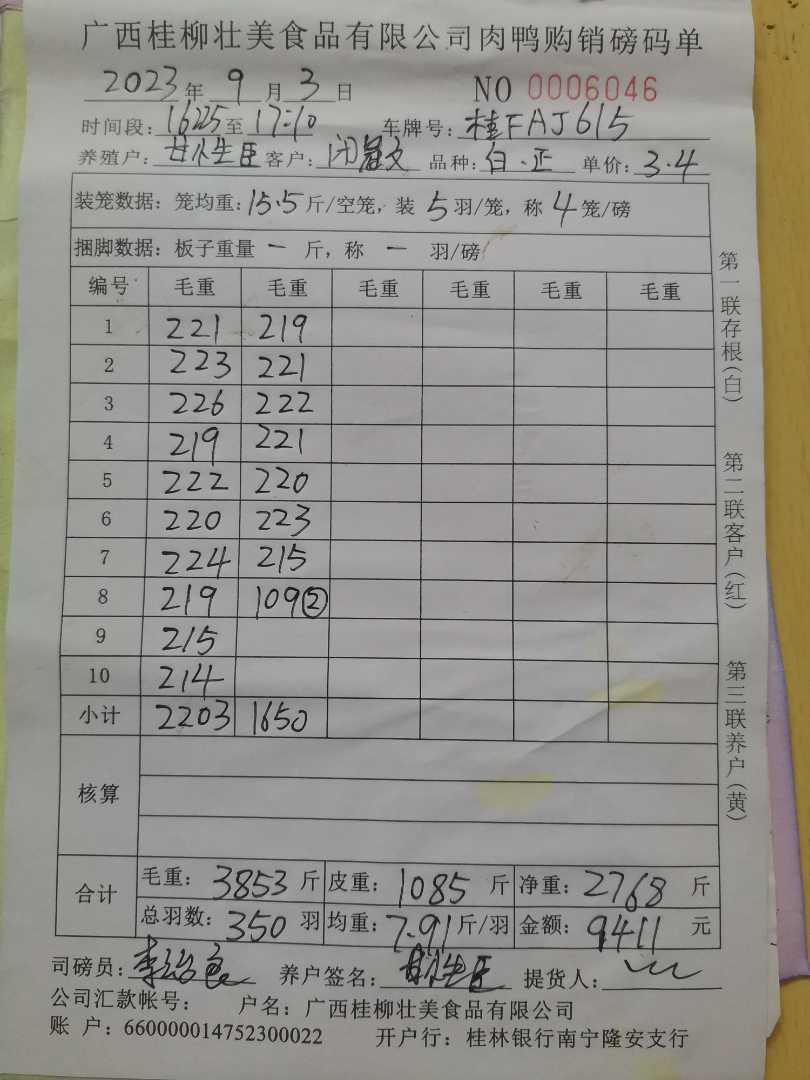 广西桂柳壮美食品有限公司肉鸭购销磅码单
2023年 9月 3日 NO 0006046
时间段: 1625至 17:10 车牌号: 桂FAJ615
养殖户: 客户: 品种: 白.正 单价: 3.4
装笼数据: 笼均重: 15.5斤/空笼, 装 5羽/笼, 称 4笼/磅
捆脚数据: 板子重量 一 斤, 称 一 羽/磅
编号 毛重 毛重 毛重 毛重 毛重 毛重
1 221 219
2 223 221
3 226 222
4 219 221
5 222 220
6 220 223
7 224 215
8 219 109②
9 215
10 214
小计 2203 1650
核算
合计 毛重: 3853斤 皮重: 1085斤 净重: 2768斤
总羽数: 350羽 均重: 7.91斤/羽 金额: 9411元
司磅员: 养户签名: 提货人:
公司汇款帐号: 户名: 广西桂柳壮美食品有限公司
账 户: 660000014752300022 开户行: 桂林银行南宁隆安支行
第一联存根(白)
第二联客户(红)
第三联养户(黄)